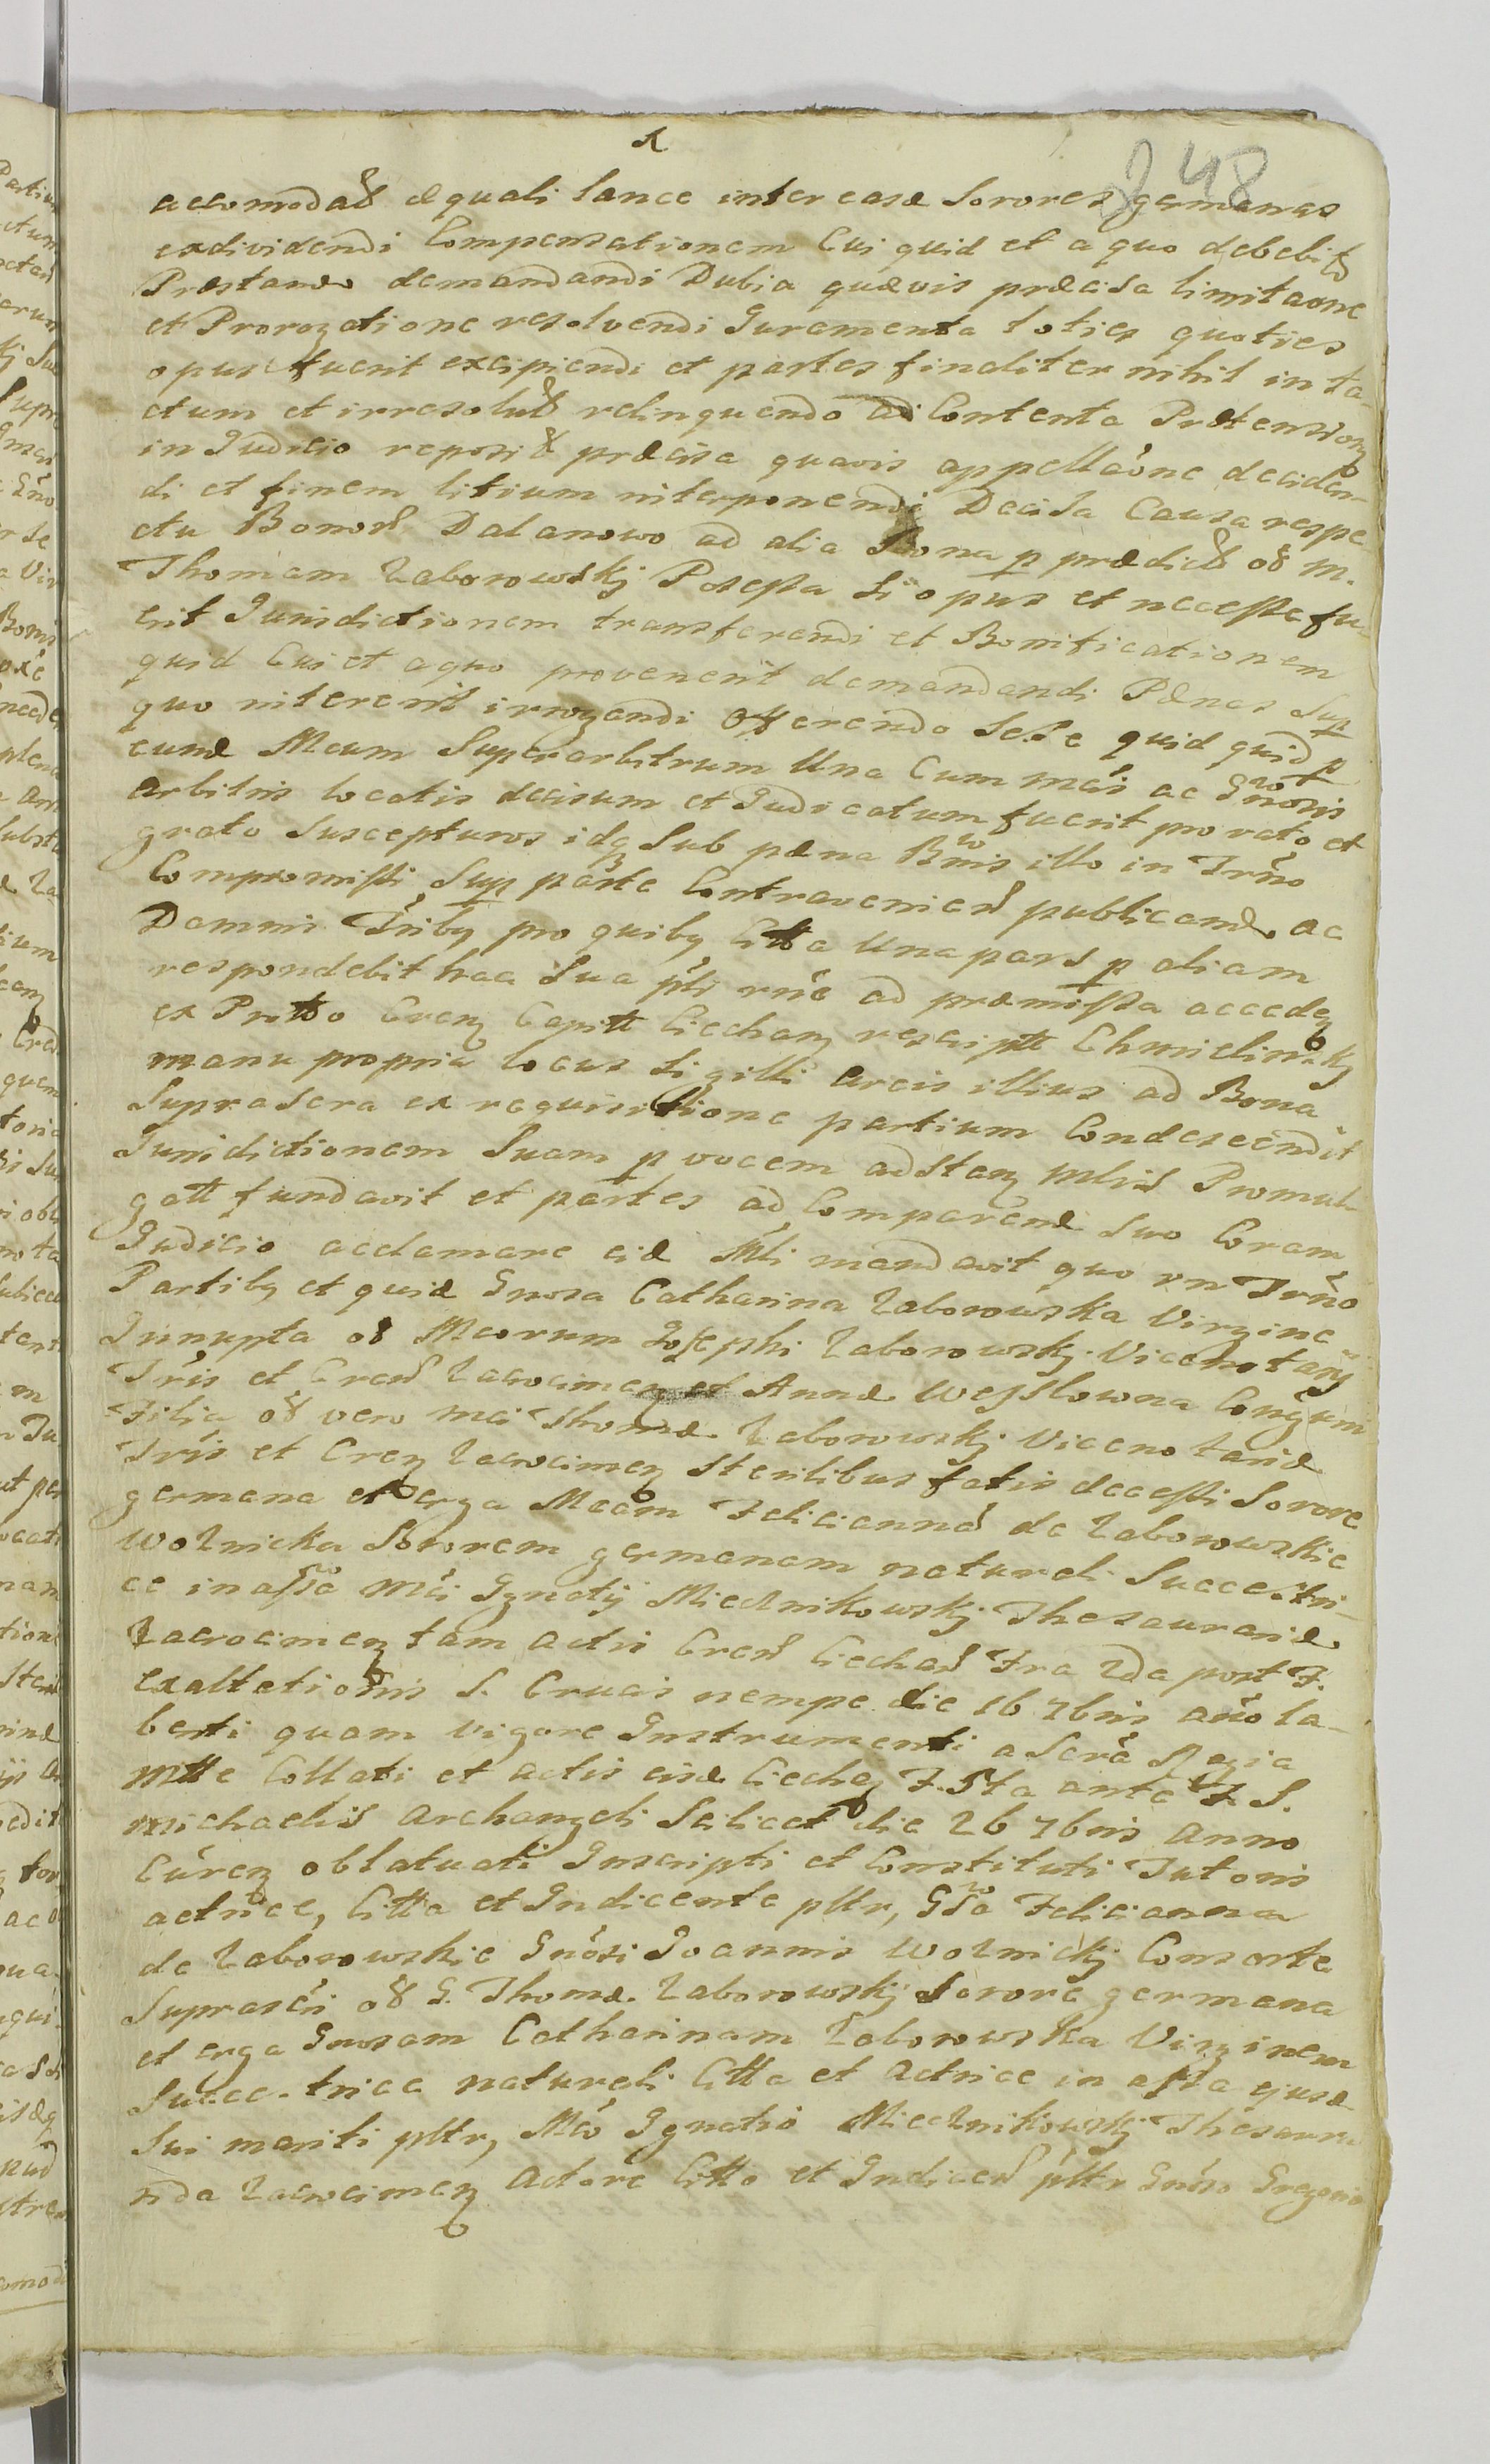 248
accomodat æquali lance inter easd Sorores germanas
exdividendi Compensationem Cui quid et a quo debebit
Præstand demandandi Dubia quævis præcisa limitaone
et Prorogatione resolvendi Juramenta toties quoties
opus fuerit excipiendi et partes finaliter nihil inta-
ctum et irresolut relinquendo ad Contenta Prætension
in Judicio reposit præcisa quavis appellaóne deciden-
di et finem litium interponendi Decisa Causa respe
ctu Bonor Dalanowo ad alia Bona p prædict oł M.
Thomam Zaborowskj Possessa si opus et necesse fu-
erit Jurisdictionem transferendi et Bonificationem
quid Cui et a quo provenerit demandandi Pænas Sup
quo niterent irrogandi Offerendo Sese quid quid p
eund Meum Superarbitrum Una Cum mcis ac Gnrosis
arbitris locatis decisum et Judicatum fuerit pro rato et
grato Suscepturos idq Sub pæna Bnnis illo in Trno
Compromissi Sup parte Contravenien publicand ac
Damni Trriby pro quiby Citta Una pars p aliam
respondebit hac Sua pnti rne ad præmissa acceden
ex Protto Cren Capitt Ciechan rescriptt Chmielinskj
manu propria locus Sigilli arcis illius ad Bona
Suprascra ex requisitione partium Condescendit
Jurisdictionem Suam p vocem adstan Mlris Promul-
gatt fundavit et partes ad Comparend Suo Coram
Judicio acclamare eid Mli mandavit quo in Trno
Partiby et quid Gnosa Catharina Zaborowska Virgine
Innupta oł Meorum Josephi Zaborowskj Vicenotarij
Trris et Cren Zacrocimen et Annæ Wesslowna Conjugum
Filia oł vero mci Thomæ Zaborowskj Vicenotarid
Trris et Cren Zacrocimen Sterilibus fatis decessi Sorore
germana et erga Mcam Feliciannam de Zaborowskie
Woznicka Sororem germanam naturali Succestri-
ce in assa Mci Ignatij Miecznikowskj Thesaurarid
Zacrocimen tam actis Cren Ciechan Fra 2da post F.
exaltationis S. Crucis nempe die 16 7bris ano la-
benti quam vigore Instrumenti a Scra Regia
Mtte Collati et actis eisd Ciechan F. 5ta ante F. S.
Michaelis Archangeli Scilicet die 26 7bris Anno
Curen oblatuati Inscripti et Constituti Tutoris
actrice, Citta et Indicente pltr, Gsa Felicianna
de Zaborowskie Gnosi Joannis Woznickj Consorte
Suprascri oł G. Thomæ Zaborowskj Sorore germana
et erga Gnosam Catharinam Zaborowska Virginem
Succe-trice naturali Citta et Actrice in assa ejusd
Sui mariti pltr, Mco Ignatio Miecznikowskj Thesaura
rida Zacrocimen Actore Citto et Indicen pltr Gnoso Gregorio